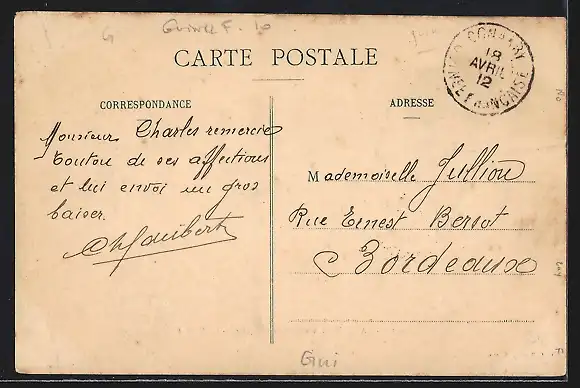 G Guinée F. 10
CARTE POSTALE
CONAKRY
18
AVRIL
12
GUINÉE FRANÇAISE
CORRESPONDANCE
ADRESSE
Monsieur Charles remercie
Toutou de ses affections
et lui envoi un gros
baiser.
Mademoiselle Jullion
Rue Ernest Bersot
Bordeaux
Gui